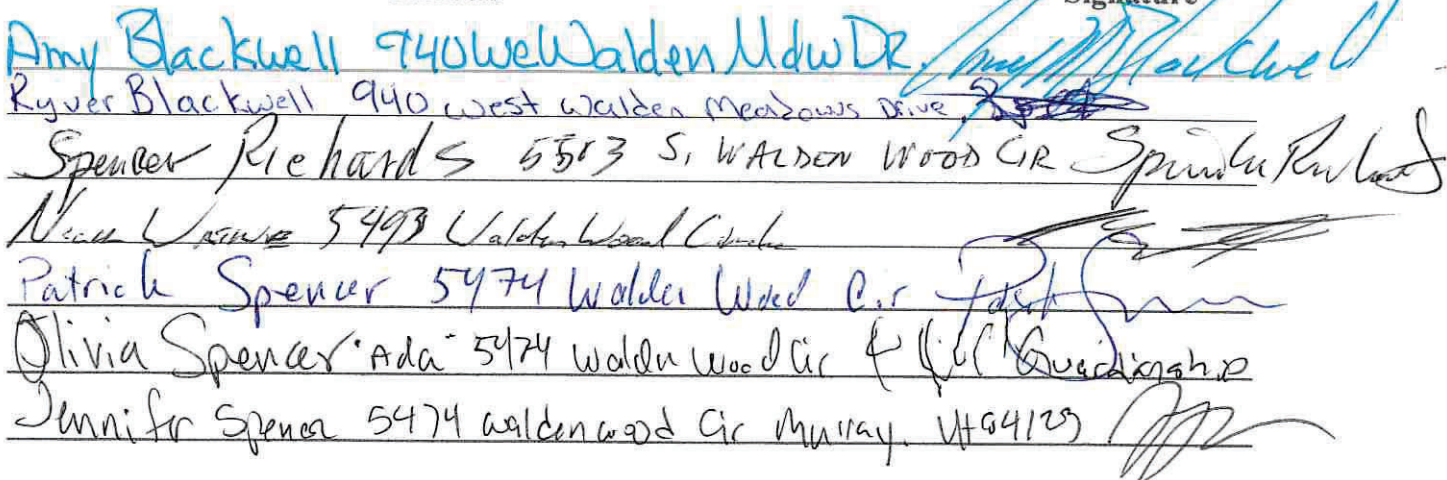 Signature
Amy Blackwell 940 We Walden Mdw DR. Amy M Blackwell
Ryver Blackwell 940 West Walden Meadows Drive
Spencer Richards 5583 S. WALDEN WOOD CIR
5493 Walden Wood Circle
Patrick Spencer 5474 Walden Wood Cir
Olivia Spencer "Ada" 5474 Waldn Wood Cir Guardianship
Jennifer Spencer 5474 waldenwood Cir Murray, Ut 84123